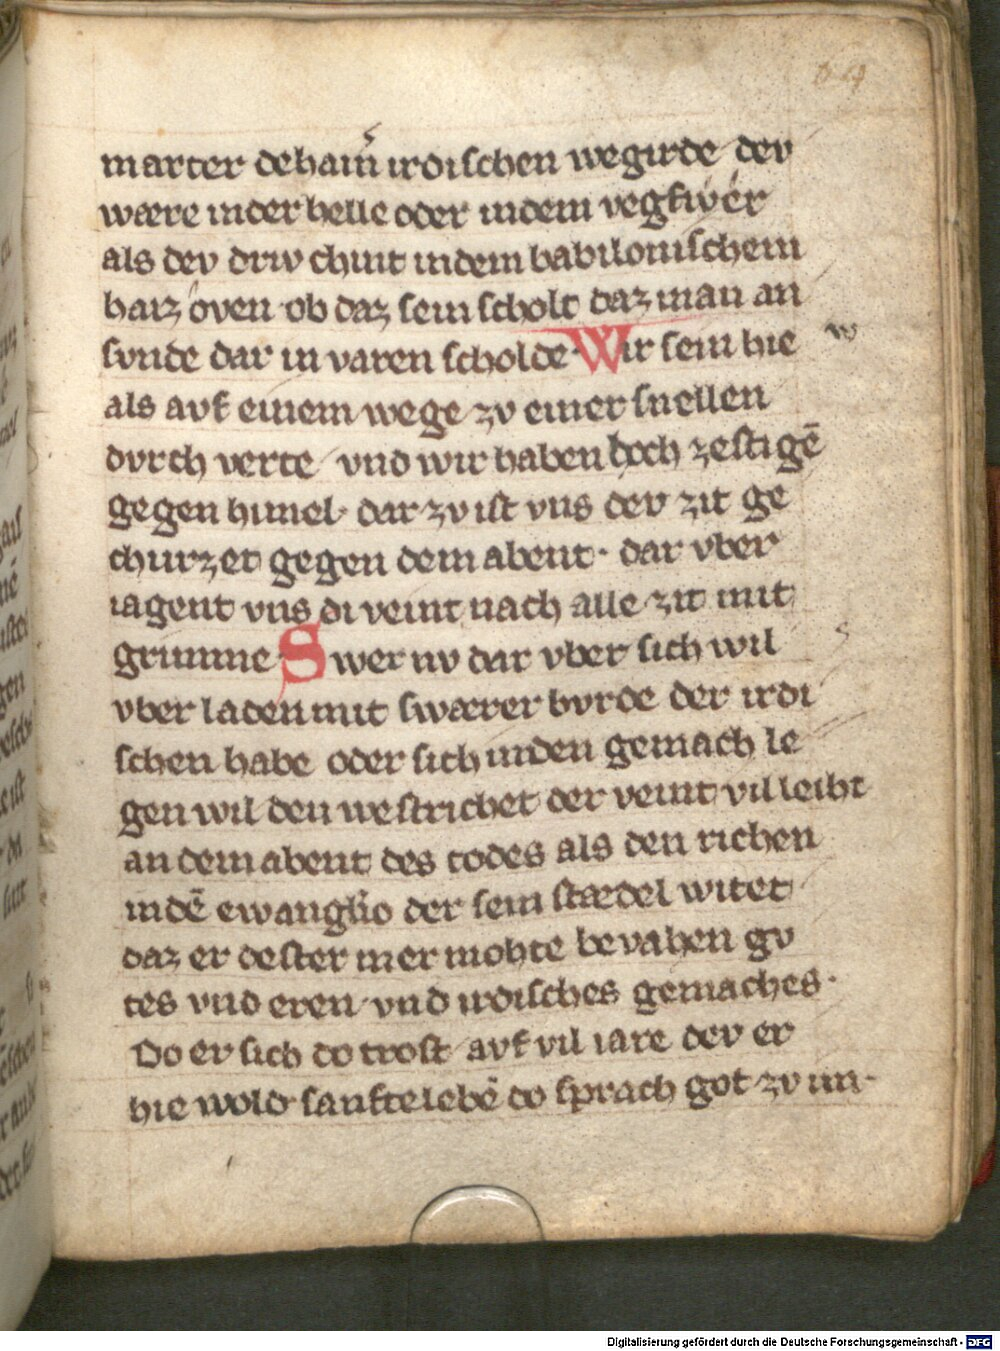 marter dehain̄ irdischen wegirde dev
wære inder helle oder indem vegfiwer
als dev driv chint indem babilonischem
haiz oven ob daz sein scholt daz man an
svnde dar in varen scholde Wir sein hie w
als avf einem wege zv einer snellen
dvrch verte vnd wir haben hoch ze stigē
gegen himel dar zv ist vns dev zit ge
churzet gegen dem abent · dar vber
iagent vns di veint nach alle zit mit
grimme Swer nv dar vber sich wil s
vber laden mit swærer bvrde der irdi
schen habe oder sich inden gemach le
gen wil den westrichet der veint vil leiht
an dem abent des todes als den richen
indē ewanglio der sein stædel witet
daz er dester mer mohte bevahen gv
tes vnd eren vnd irdisches gemaches ·
Do er sich do trost avf vil iare dev er
hie wold sanfte lebē do sprach got zv im ·
Digitalisierung gefördert durch die Deutsche Forschungsgemeinschaft - DFG